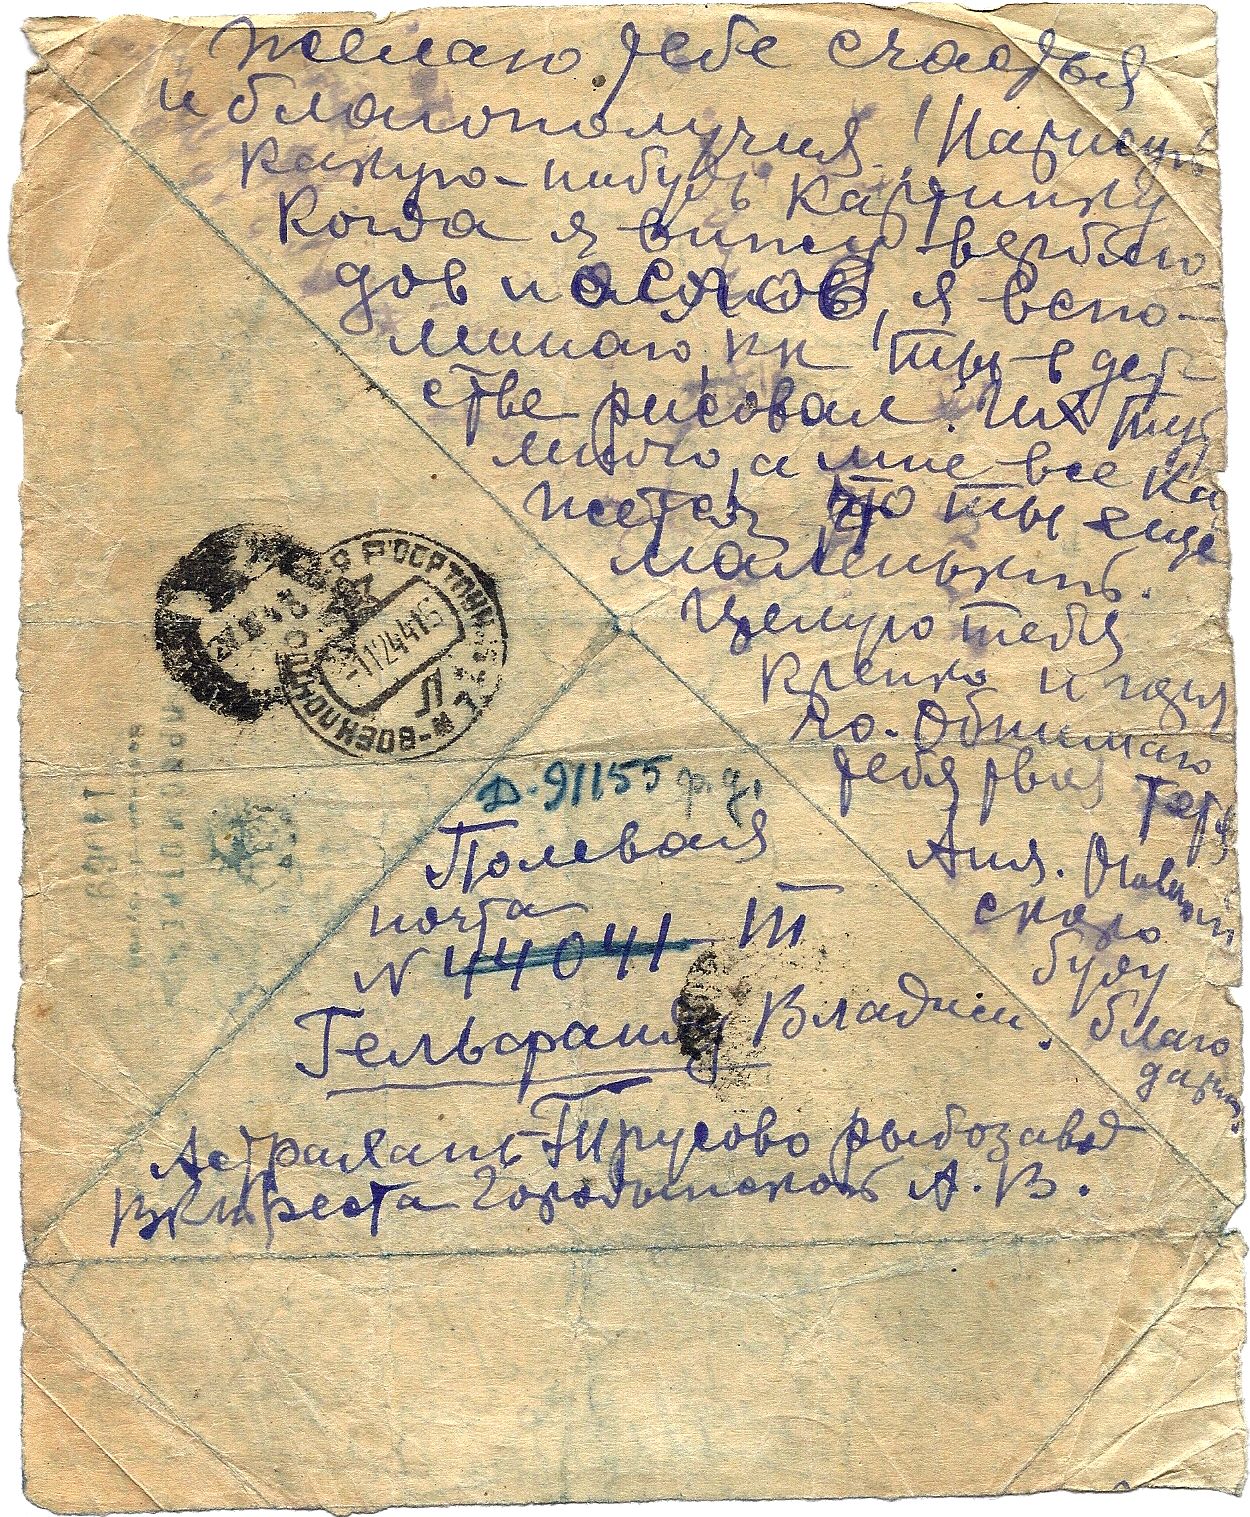 Желаю тебе счастья
и благополучия. Нарисуй
какую-нибудь картинку
Когда я вижу верблю
дов и ослов, я вспо-
минаю, кк ты в дет
стве рисовал. Их тут
много, а мне все ка
жется, что ты еще
маленький.
Целую тебя
крепко и горя
чо. Обнимаю
тебя твоя тетя
Аня.
скоро
буду
благо
дарить.
Д. 91155 р.д.
Полевая
почта
N 44041 Т
Гельфанду Владим.
Астрахань Трусово рыбозавод
Вкктреста Городынской А. В.